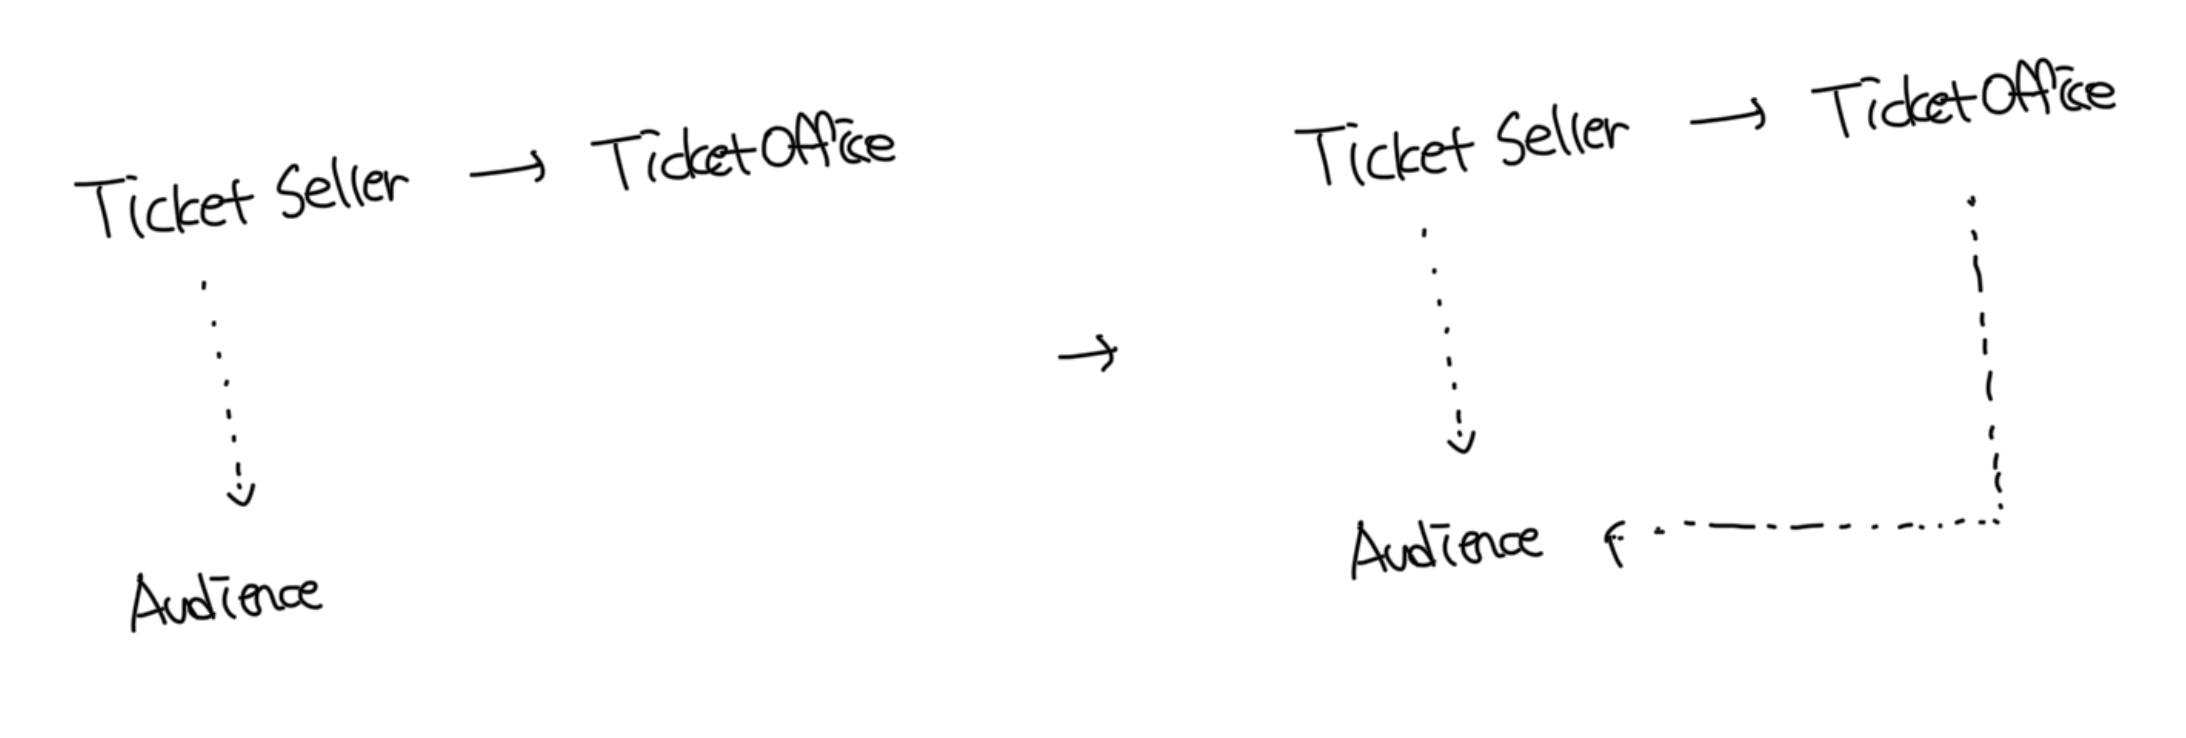 Ticket Seller → TicketOffice
Audience
→
Ticket Seller → TicketOffice
Audience